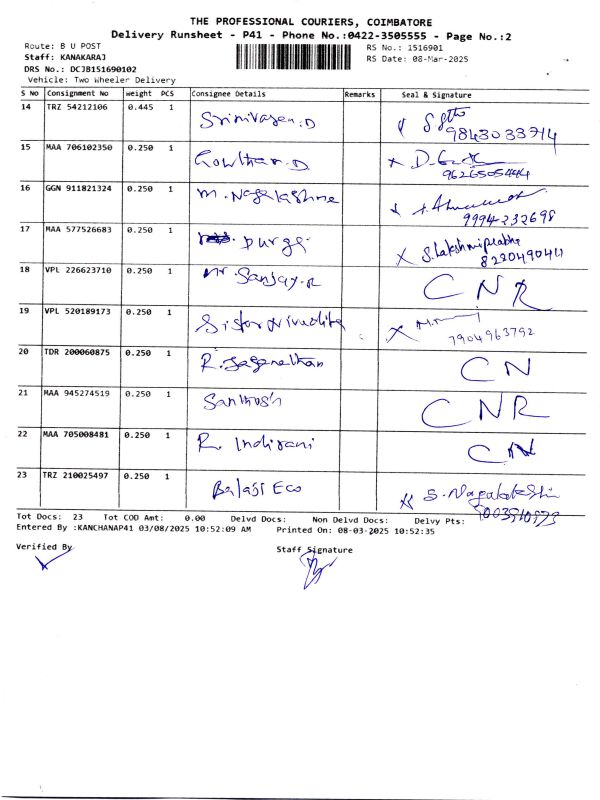 THE PROFESSIONAL COURIERS, COIMBATORE
Delivery Runsheet - P41 - Phone No.:0422-3505555 - Page No.:2
Route: B U POST
RS No.: 1516901
Staff: KANAKARAJ
RS Date: 08-Mar-2025
DRS No.: DCJB151690102
Vehicle: Two Wheeler Delivery
S No Consignment No weight PCS Consignee Details Remarks Seal & Signature
14 TRZ 54212106 0.445 1 Srinivasan.D
9843033714
15 MAA 706102350 0.250 1 Gowtham.D
9626505444
16 GGN 911821324 0.250 1 M. Nagalashme
9994232698
17 MAA 577526683 0.250 1 Durga S.Lakshmiprabha
8220490411
18 VPL 226623710 0.250 1 Mr. Sanjay.R CNR
19 VPL 520189173 0.250 1 Sister Nivedita
7904963792
20 TDR 200060875 0.250 1 R. Jaganathan CN
21 MAA 945274519 0.250 1 Santhosh CNR
22 MAA 705008481 0.250 1 R. Indirani CN
23 TRZ 210025497 0.250 1 Balaji Eco S. Nagalakshmi
Tot Docs: 23 Tot COD Amt: 0.00 Delvd Docs: Non Delvd Docs: Delvy Pts:
Entered By :KANCHANAP41 03/08/2025 10:52:09 AM Printed On: 08-03-2025 10:52:35
Verified By
Staff Signature